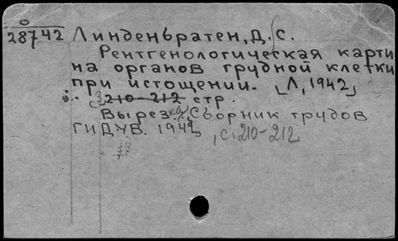 28742 Линденбратен, Д. С.
Рентгенологическая карти
на органов грудной клетки
при истощении. [Л, 1942]
с. 210-212 стр.
Вырезка: Сборник трудов
ГИДУВ. 1942, с. 210-212